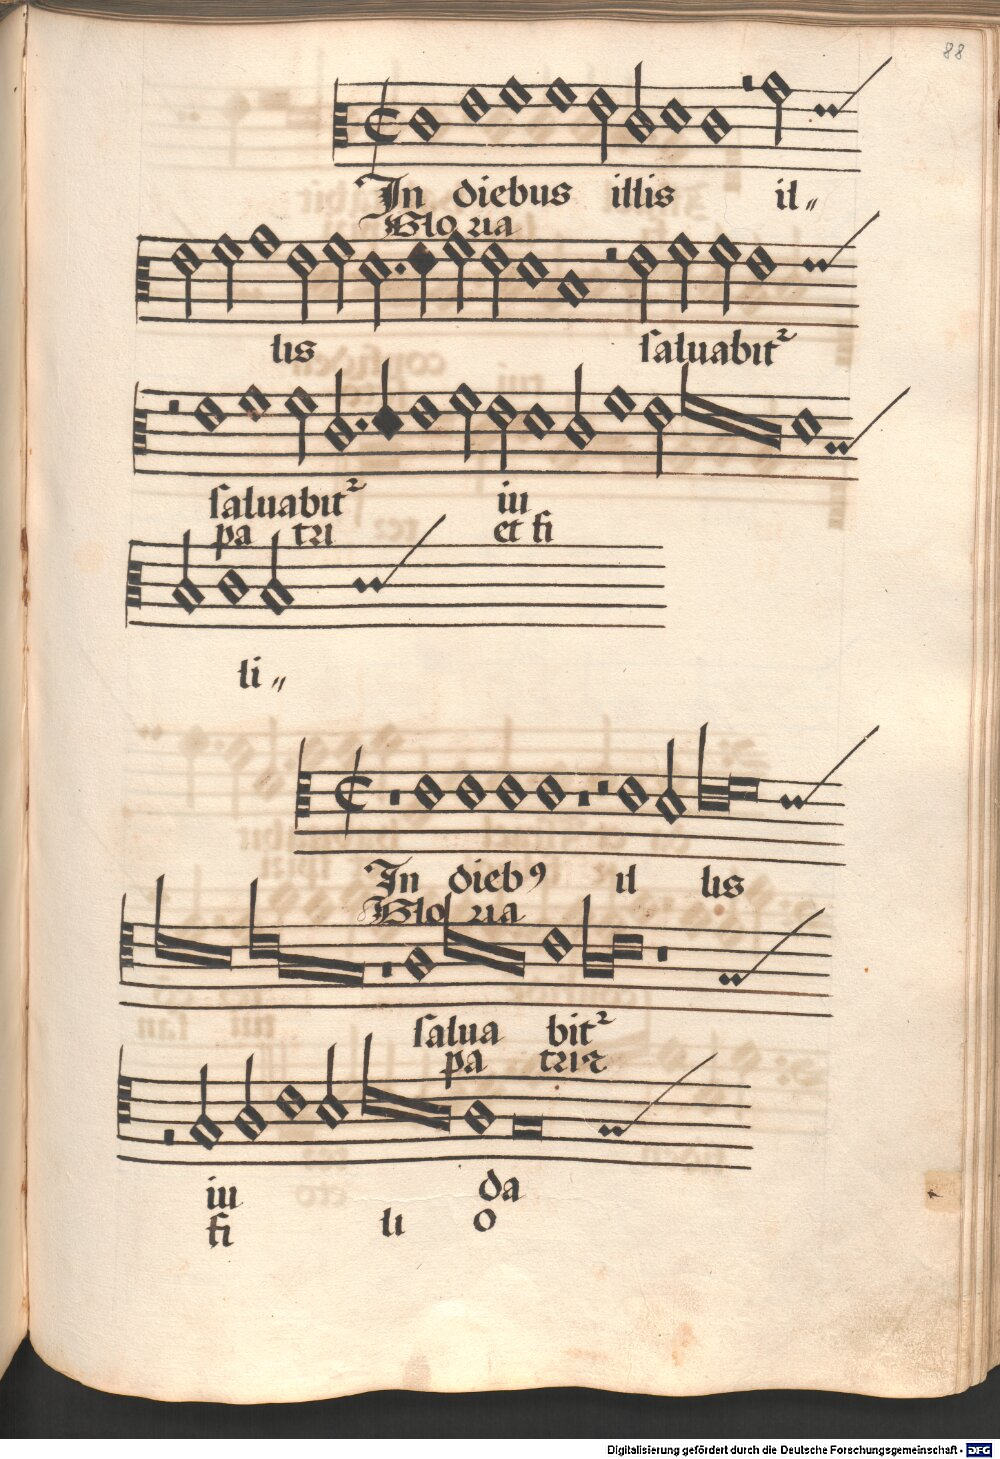 88
In diebus illis il〃
Glo ria
lis saluabitꝛ
saluabitꝛ iu
pa tri et fi
li〃
In diebꝰ il lis
Glo ria
salua bitꝛ
pa tri ⁊
iu da
fi li o
Digitalisierung gefördert durch die Deutsche Forschungsgemeinschaft - DFG